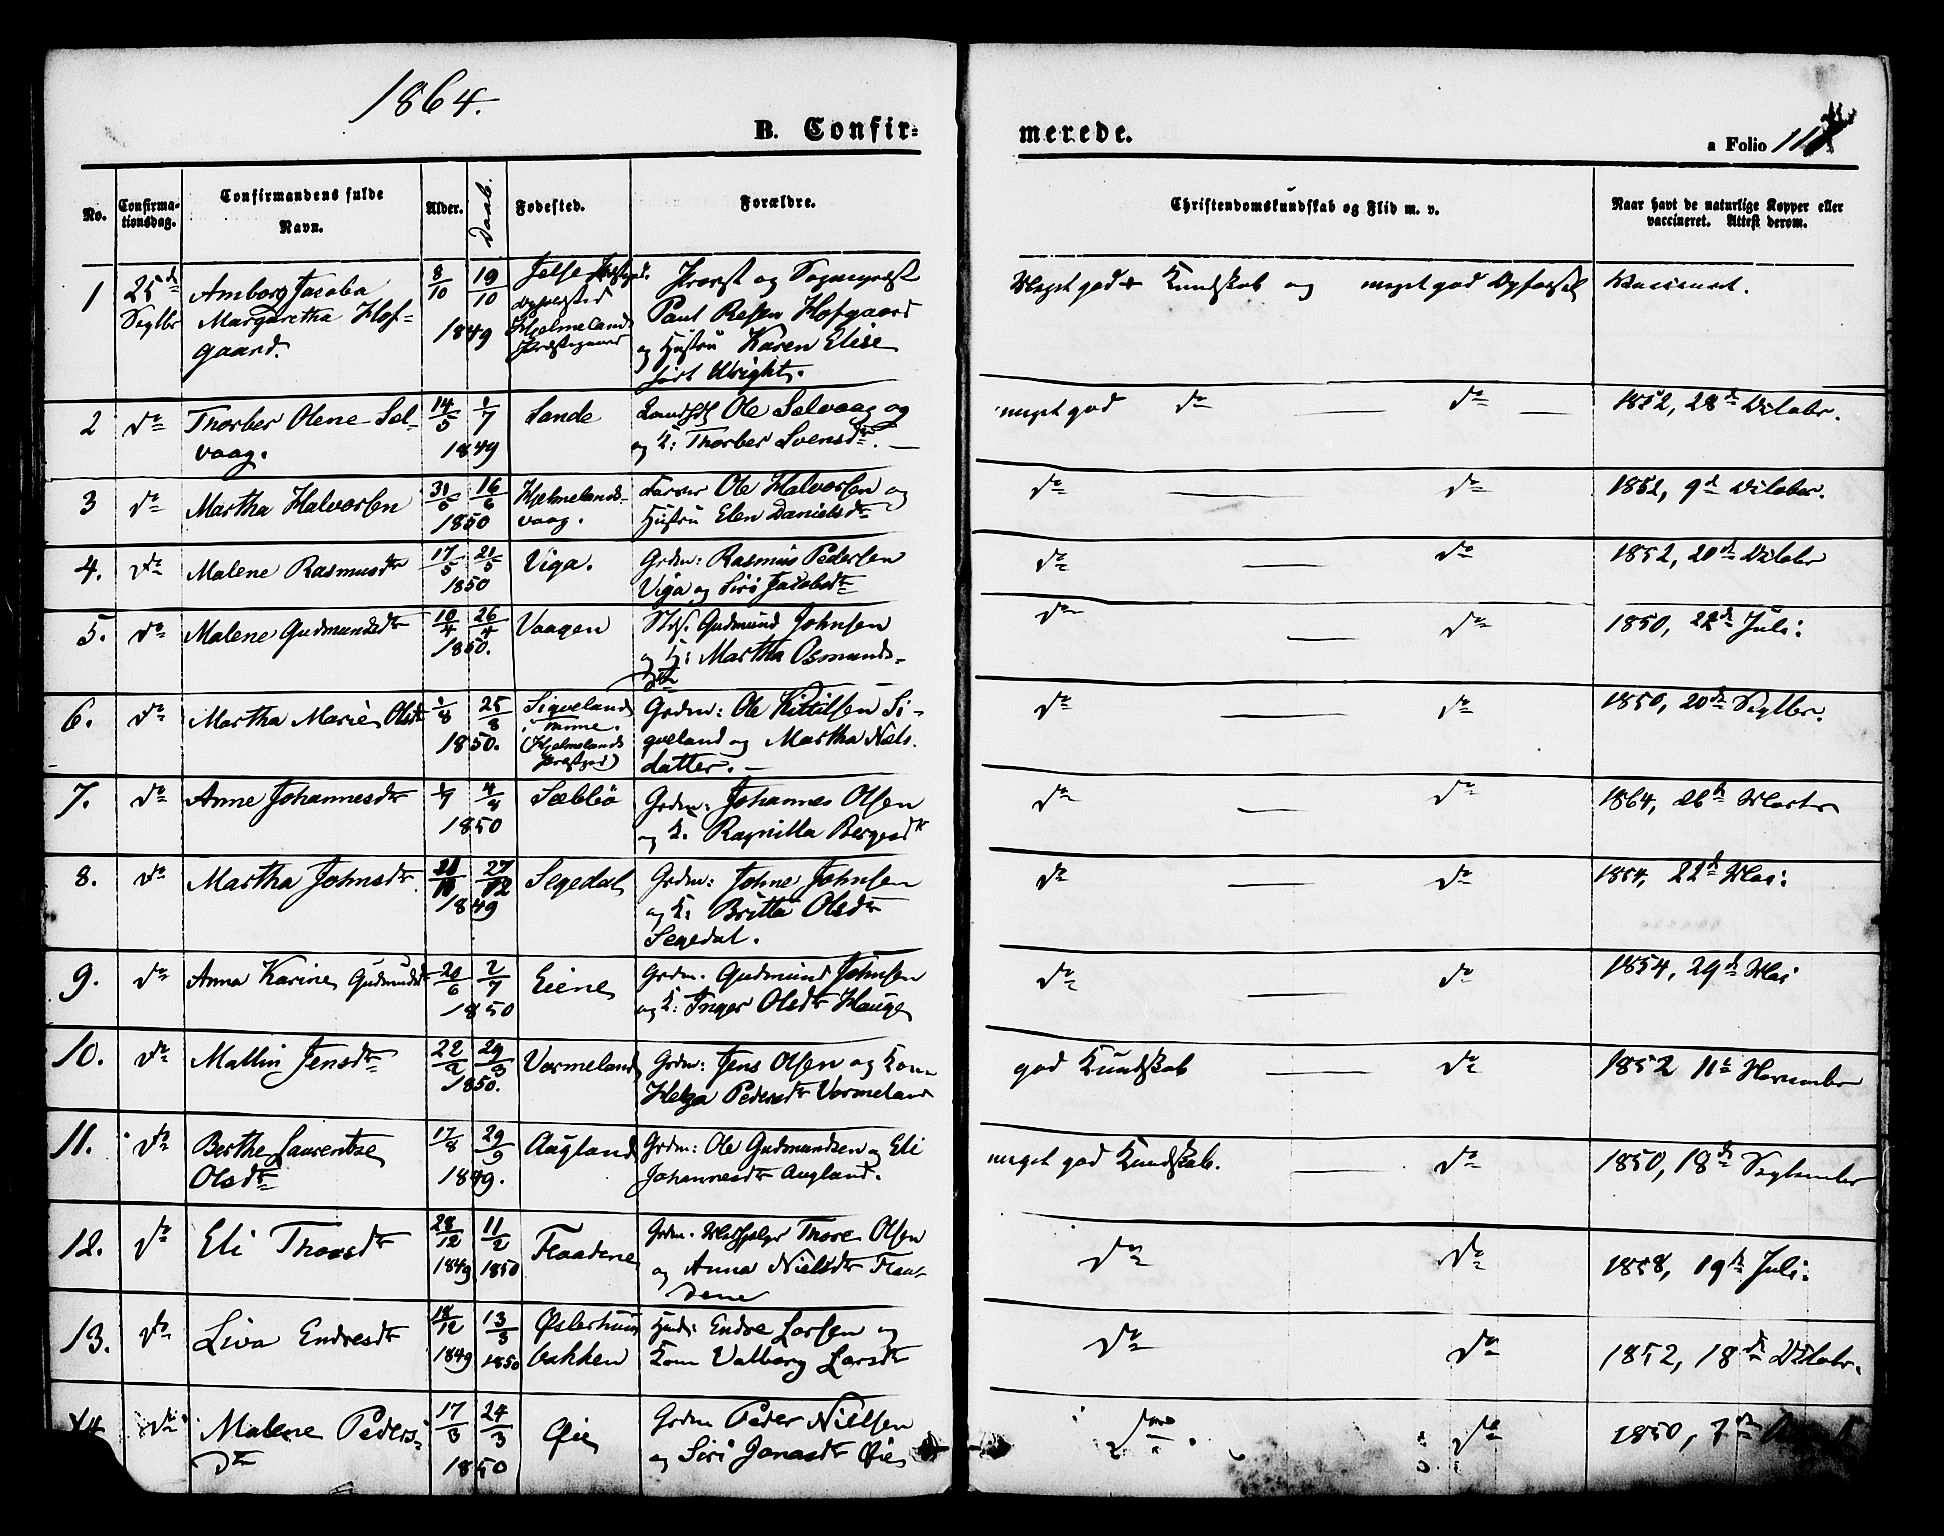 1864.
B. Confir-
merede.
a Folio
No.
Confirma-
tionsdag.
Confirmandens fulde
Navn.
Alder.
Daab.
Fødested.
Forældre.
Christendomskundskab og Flid m. v.
Naar havt de naturlige Kopper eller
vaccineret. Attest derom.
1
25de
Septbr
Amborg Jacoba
Margaretha Hof-
gaard.
8/10
19/10
1849
Jelse
Hjelmelands
Præstegaard
Provst og Sognepræst
Paul Resen Hofgaard
og Hustru Karen Elise
født Wright.
Meget god Kundskab og meget god Opførsel
Vaccineret.
2
do
Thorber Olene Sel-
vaag.
14/5
1/7
1849
Sande
Ole Selvaag og
og K: Thorber Svensdtr.
meget god do — do —
1852, 28de Octobr.
3
do
Martha Halvorsen
31/5
16/6
1850
Hjelmelands-
vaag.
Ole Halvorsen og
Hustru Elen Danielsdtr
do — do
1852, 9de October.
4.
do
Malene Rasmusdtr
17/5
21/5
1850
Viga.
Grdm: Rasmus Pedersen
Viga og Siri Jacobsdtr
do — do
1852, 20de Octobr
5.
do
Malene Gudmundsdtr
10/4
26/4
1850.
Vaagen
Gudmund Johnsen
og H: Martha Osmunds-
dtr
do — do
1850, 22de Juli.
6.
do
Martha Marie Olsdtr
1/8
25/8
1850.
Sigveland
(Hjelmelands
Præstgjd)
Grdm: Ole Kittilsen Si-
gveland og Martha Nels
datter. —
do — do
1850, 20de Septbr.
7.
do
Anne Johannesdtr
4/4
1850
Sæbbø
Grdm: Johannes Olsen
og K. Ragnilla Bergesdtr
do — do
1864, 26de Marts
8.
do
Martha Johnsdtr
27/12
1849
Segedal
Grdm: Johne Johnsen
og K: Britta Olsdtr
Segedal.
do — do
1854, 22de Mai.
9.
do
Anna Karine Gudmundsdtr
20/6
2/7
1850
Eiene
Grdm. Gudmund Johnsen
og K: Inger Olsdtr Hauge
do — do
1854, 29de Mai
10.
do
Mallin Jensdtr
22/2
29/3
1850.
Vormeland
Grdm: Jens Olsen og Kone
Helga Pedersdtr Vormeland
god Kundskab — do
1852 11te November
11.
do
Berthe Laurentse
Olsdtr
17/8
29/9
1849.
Augland
Grdm: Ole Gudmundsen og Eli
Johannesdtr Augland.
meget god Kundskab. — do
1850, 18de September
12.
do
Eli Thoresdtr
28/12
1849
11/2
1850
Flaatene
Grdm. Thore Olsen
og Anna Nielsdtr
do do
1858, 19de Juli.
13.
do
Liva Endresdtr
18/12
1849
13/3
1850
Østerhuus
bakken
Huusm: Endre Larsen og
Kone Valborg Larsdtr
do do
1852, 18de Octobr.
14
do
Malene Peders-
dtr
17/3
24/3
1850
Øie
Grdm Peder Nielsen
og Siri Jonasdtr Øie
do do
1850, 7de